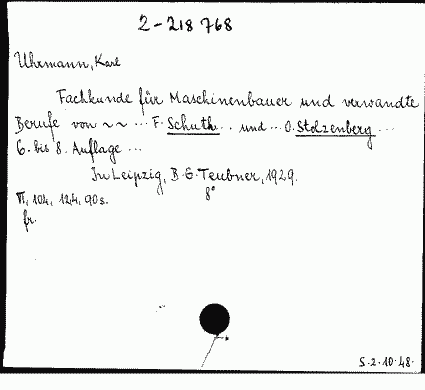 2-218 768
Uhrmann, Karl
Fachkunde für Maschinenbauer und verwandte
Berufe von ~ ~ ... F. Schuth... und ... O. Stolzenberg ...
6. bis 8. Auflage ...
In Leipzig, B. G. Teubner, 1929.
VI, 104, 124, 90 s. 8°
fr.
S. 2. 10. 48.